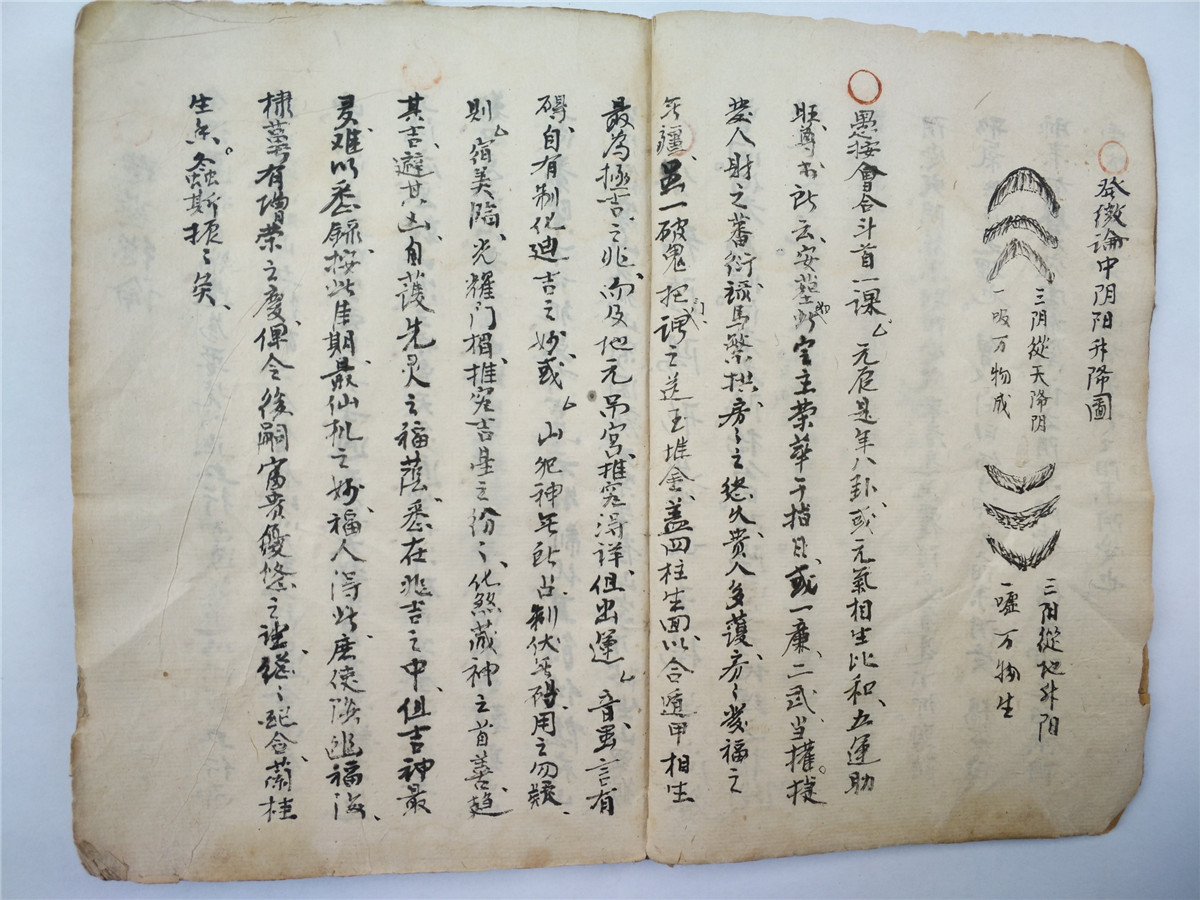 發微論中阴阳升降圖
三阴從天降阴
一吸万物成
三阳從地升阳
一噓万物生
愚按會合斗首一課 元辰是年八卦或元氣相生比和五運助
旺尊书所云安塋 宅主荣華于指日或一廉二武当權
發人財之蕃衍 馬繁拱房之 久貴人多護房々發福之
无疆 一破鬼把 之送玉堆金盖四柱生面以合遁甲相生
最為極吉之兆而及地元吊宮推究得詳但出運 音虽言有
碍自有制化迪吉之妙或 山犯神无所占制伏无碍用之勿疑
則 宿美臨光耀门楣推究吉星之紛々化煞藏神之首善趋
其吉避其凶自護先灵之福蔭悉在兆吉之中但吉神最
多难以悉録按此年期最仙机之妙福人得此庶使 福海
有增榮之慶俾令後嗣富貴優悠之 継々 合蘭桂
生 螽斯振々矣